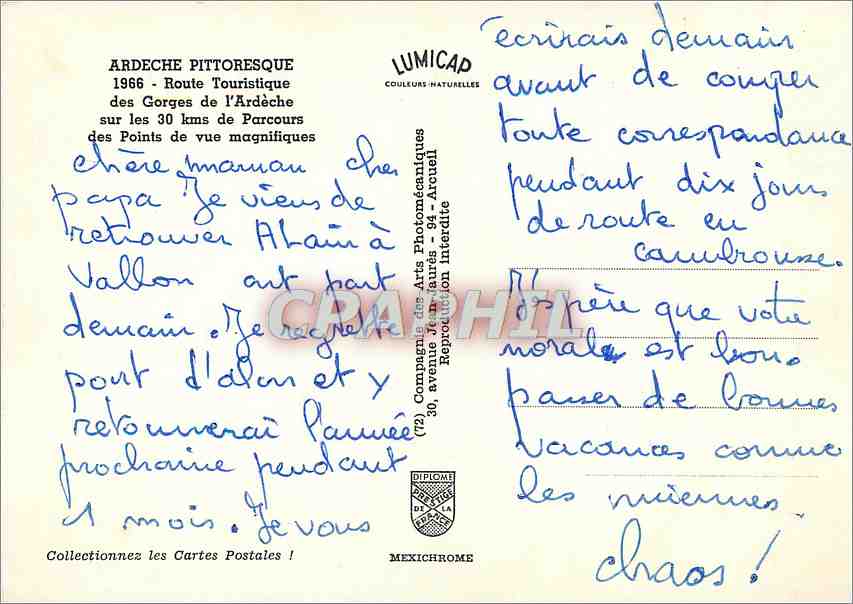 ARDECHE PITTORESQUE
1966 - Route Touristique
des Gorges de l'Ardèche
sur les 30 kms de Parcours
des Points de vue magnifiques
chère maman cher
papa. Je viens de
retrouver Alain à
Vallon ont part
demain. Je regrette
pont d'alon et y
retournerai l'année
prochaine pendant
1 mois. Je vous
Collectionnez les Cartes Postales !
LUMICAP
COULEURS NATURELLES
(72) Compagnie des Arts Photomécaniques
30, avenue Jean-Jaurès - 94 - Arcueil
Reproduction interdite
DIPLOME
PRESTIGE
DE LA
FRANCE
MEXICHROME
écrirais demain
avant de couper
toute correspondance
pendant dix jours
de route en
cambrousse.
J'espère que votre
morale est bon.
passer de bonnes
vacances comme
les miennes
chaos !
CPAPHIL